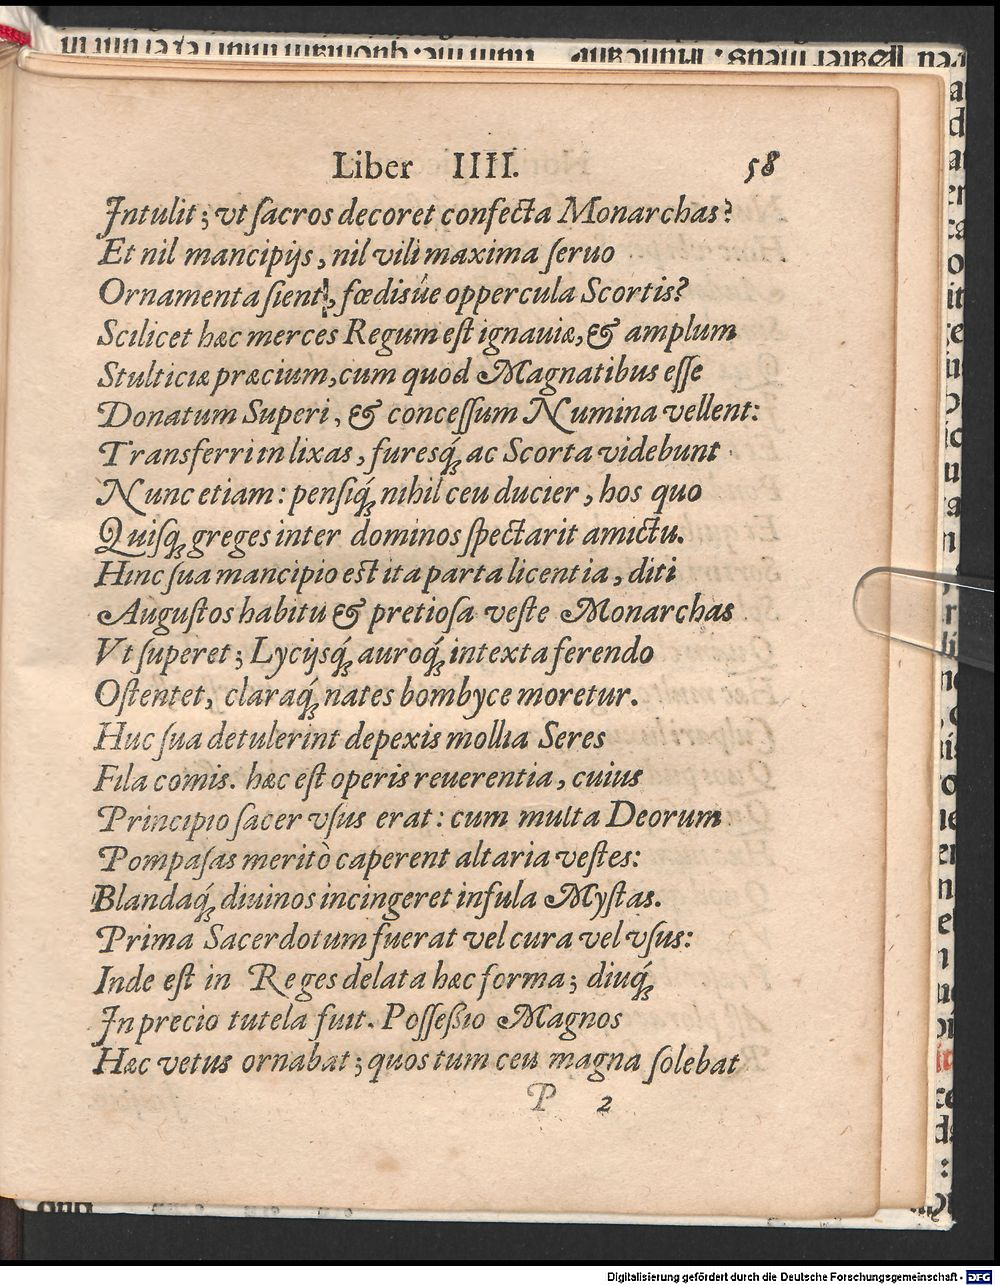 Liber IIII. 58
Intulit; vt ſacros decoret confecta Monarchas?
Et nil mancipijs, nil vili maxima ſeruo
Ornamenta ſient, fœdisúe oppercula Scortis?
Scilicet hæc merces Regum eſt ignauiæ, & amplum
Stulticiæ præcium, cum quod Magnatibus eſſe
Donatum Superi, & conceſſum Numina vellent:
Transferri in lixas, furesq́; ac Scorta videbunt
Nunc etiam: penſiq́; nihil ceu ducier, hos quo
Quiſq; greges inter dominos ſpectarit amictu.
Hinc ſua mancipio eſt ita parta licentia, diti
Auguſtos habitu & pretioſa veſte Monarchas
Vt ſuperet; Lycijsq́; auroq́; intexta ferendo
Oſtentet, claraq́; nates bombyce moretur.
Huc ſua detulerint depexis mollia Seres
Fila comis. hæc eſt operis reuerentia, cuius
Principio ſacer vſus erat: cum multa Deorum
Pompaſas meritò caperent altaria veſtes:
Blandaq́; diuinos incingeret infula Myſtas.
Prima Sacerdotum fuerat vel cura vel vſus:
Inde eſt in Reges delata hæc forma; diuq́;
In precio tutela fuit. Poſſeßio Magnos
Hæc vetus ornabat; quos tum ceu magna ſolebat
P 2
Digitalisierung gefördert durch die Deutsche Forschungsgemeinschaft - DFG